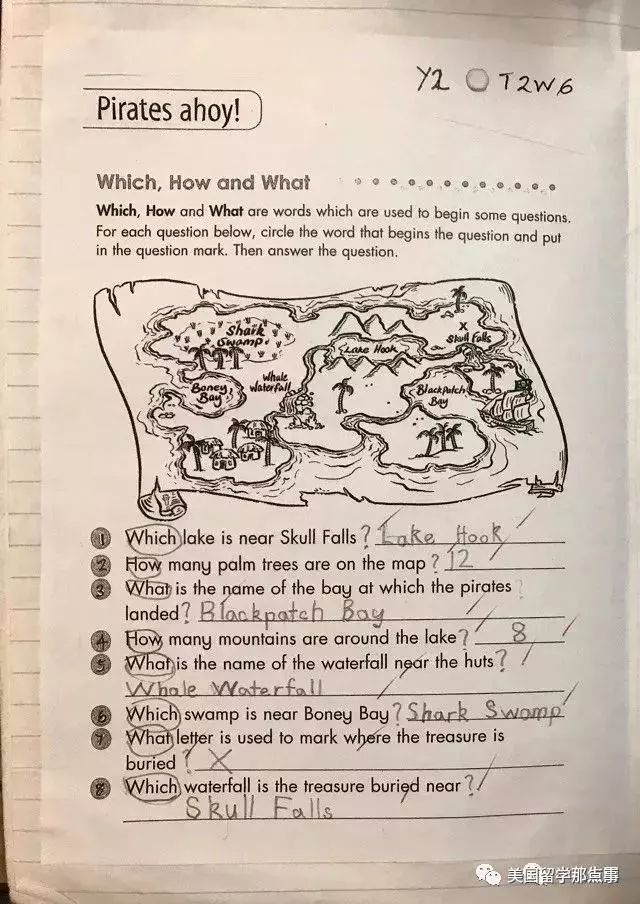 Y2 T2W6
Pirates ahoy!
Which, How and What
Which, How and What are words which are used to begin some questions.
For each question below, circle the word that begins the question and put
in the question mark. Then answer the question.
Shark
Swamp
Lake Hook
X
Skull Falls
Boney
Bay
Whale
Waterfall
Blackpatch
Bay
1 Which lake is near Skull Falls? Lake Hook
2 How many palm trees are on the map? 12
3 What is the name of the bay at which the pirates
landed? Blackpatch Bay
4 How many mountains are around the lake? 8
5 What is the name of the waterfall near the huts?
Whale Waterfall
6 Which swamp is near Boney Bay? Shark Swamp
7 What letter is used to mark where the treasure is
buried? X
8 Which waterfall is the treasure buried near?
Skull Falls
美国留学那些事